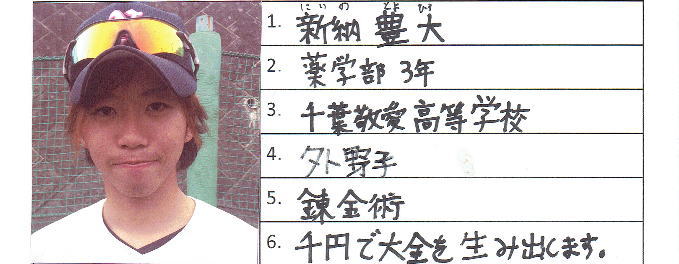 にいの とよ ひろ
1. 新納 豊大
2. 薬学部 3年
3. 千葉敬愛高等学校
4. 外野手
5. 錬金術
6. 千円で大金を生み出します。